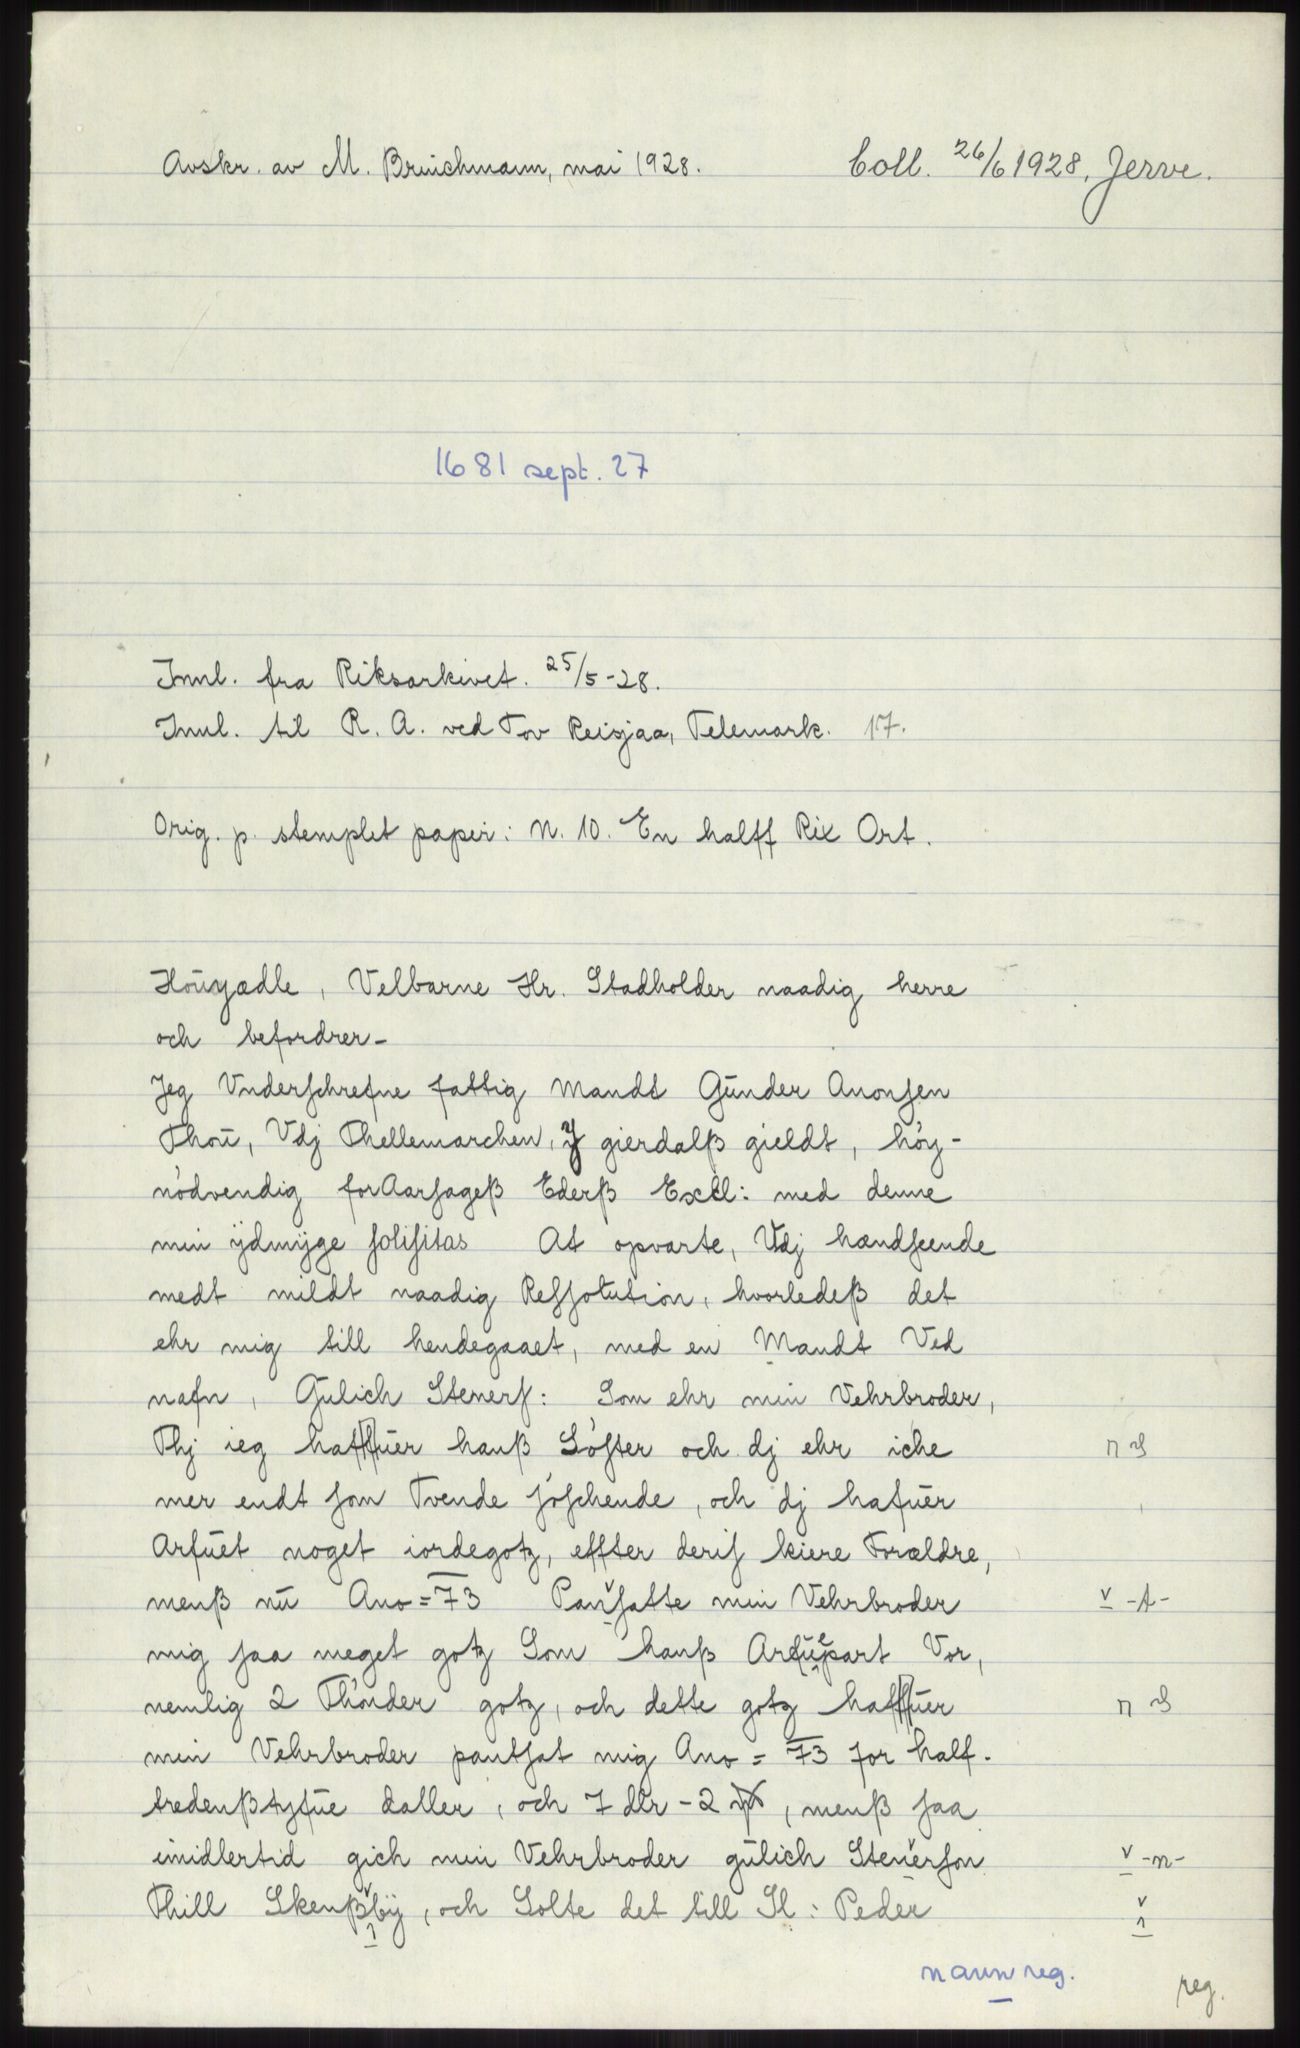 Avskr. av M. Bruichmann, mai 1928.
Coll. 26/6 1928, Jerve.
1681 sept. 27
Innl. fra Riksarkivet. 25/5-28.
Innl. til R. A. ved Tov Reisjaa, Telemark. 17.
Orig. p. stemplet papir: N. 10. En halff Rix Ort.
Höuyædle, Velbarne Hr. Stadholder naadig herre
och befordrer-
Jeg Vnderschrefne fattig Mandt Gūnder Anonsen
Thoū, Vdj Thellemarchen, J gierdalß gieldt, höy-
nödvendig forAarsageß Ederß Excl: med denne
min ÿdmÿge solisitas At opvarte, Vdj handseende
medt mildt naadig Ressolution, hvorledeß det
ehr mig till hendegaaet, med en Mandt Ved
nafn, Gūlich Steners: Som ehr min Vehrbroder,
Thj ieg haffuer hanß Söster och dj ehr iche
n S
mer endt som Tvende söschende, och dj hafuer
Arfūet noget iordegotz, effter deris kiere Forældre,
menß nū Ano=73 Pansatte min Vehrbroder
v -t-
mig saa meget gotz Som hanß Arfuepart Vor,
nemlig 2 Thönder gotz, och dette gotz haffuer
n S
min Vehrbroder pantsat mig Ano = 73 for half-
tredenßtyfue daller, och 7 dlr - 2 , menß saa
imidlertid gich min Vehrbroder gūlich Stenerson
v -n-
Thill Skenßbÿ, och Solte det till Sl: Peder
v
1
navnreg.
reg.